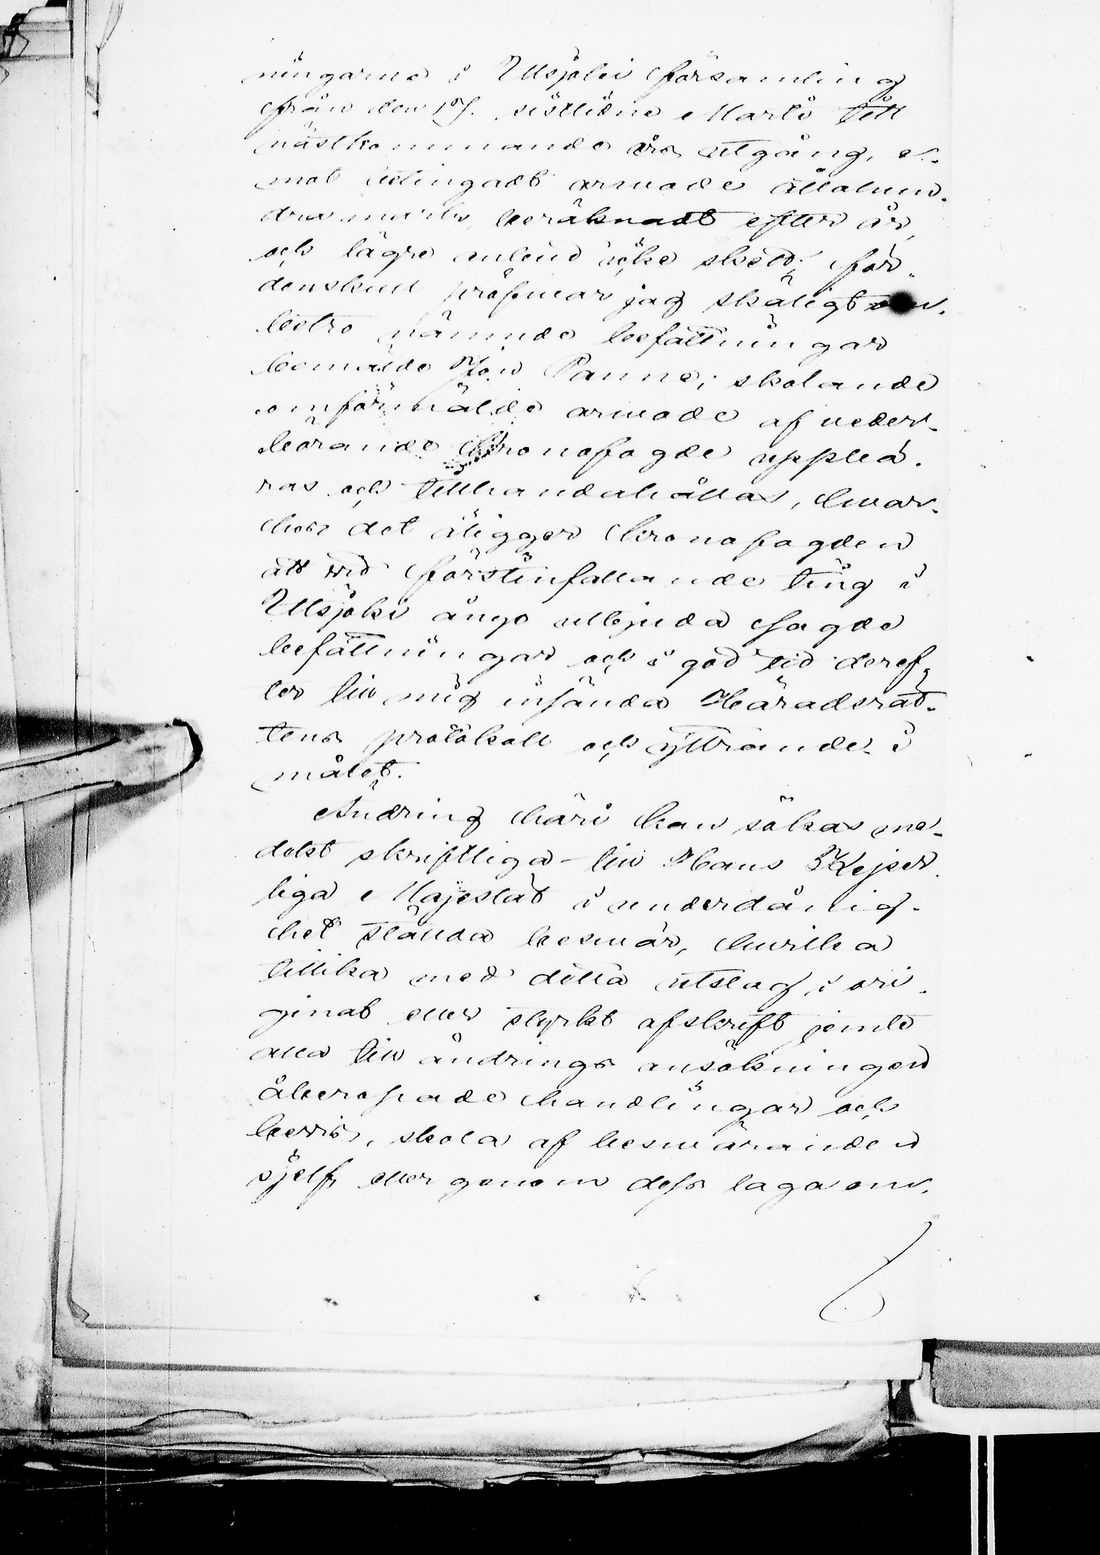 ningarne i Utsjoki församling
från den 17. sistlidne Martii till
nästkommande års utgång, e-
mot betingadt arvode åttahun-
dra mark, beräknadt efter år,
och lägre anbud icke skedt; för-
denskull pröfwar jag skäligt an-
betro nämnde befattningar
bemälde Panne; skolande
omförmälde arvode af veder-
börande Kronofogde uppbä-
ras och tillhandahållas, hvar-
hos det åligger Kronofogden
att vid förstinfallande ting i
Utsjoki ånyo utbjuda sagde
befattningar och i god tid deref-
ter till mig insända Häradsrät-
tens protokoll och yttrande i
målet.
Ändring häri kan sökas me-
delst skriftliga till Hans Kejser-
liga Majestät i underdånig-
het stälda besvär, hvilka
tillika med detta utslag i ori-
ginal eller styrkt afskrift jemte
alla till ändrings ansökningen
åberopade handlingar och
bevis, skola af besväranden
sjelf, eller genom dess laga om-